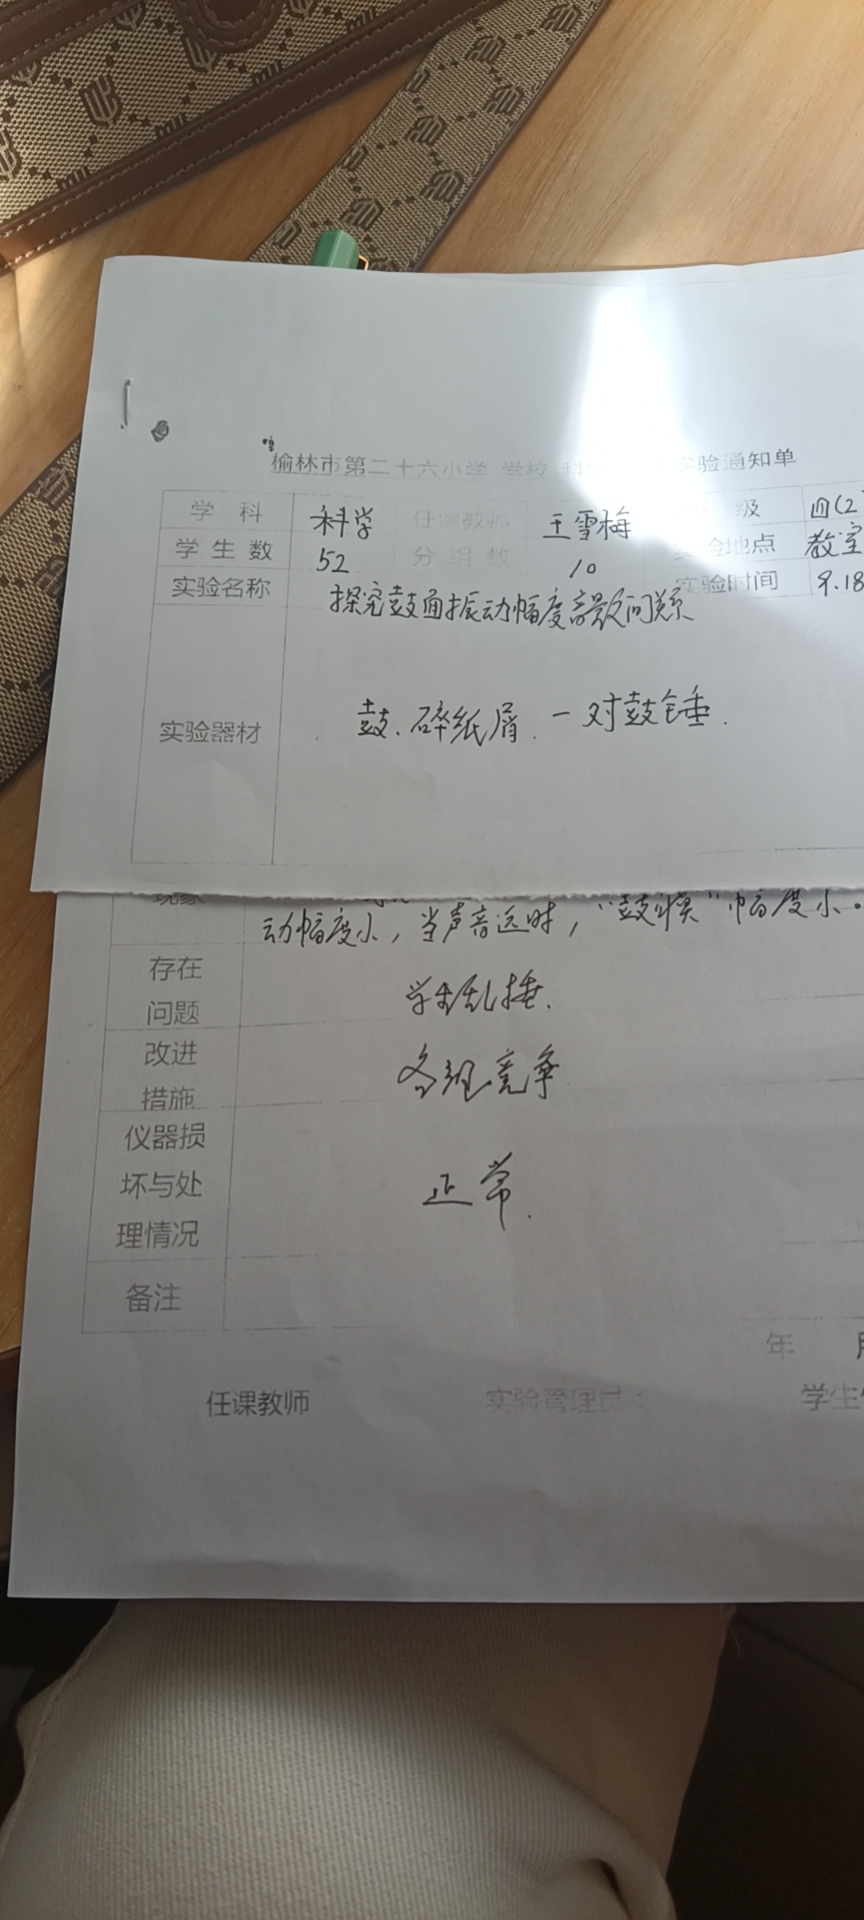 榆林市第二十六小学 学校 科 实验通知单
学 科 科学 任课教师 王雪梅 级 四(2
学 生 数 52 分 组 数 10 实验地点 教室
实验名称 探究鼓面振动幅度 实验时间 9.18
实验器材 鼓、碎纸屑、一对鼓锤.
现象
动幅度小，当声音远时，“鼓膜”幅度小。
存在
问题 学生乱捶.
改进
措施 各组竞争
仪器损
坏与处
理情况 正常.
备注
年 月
任课教师 实验管理员： 学生